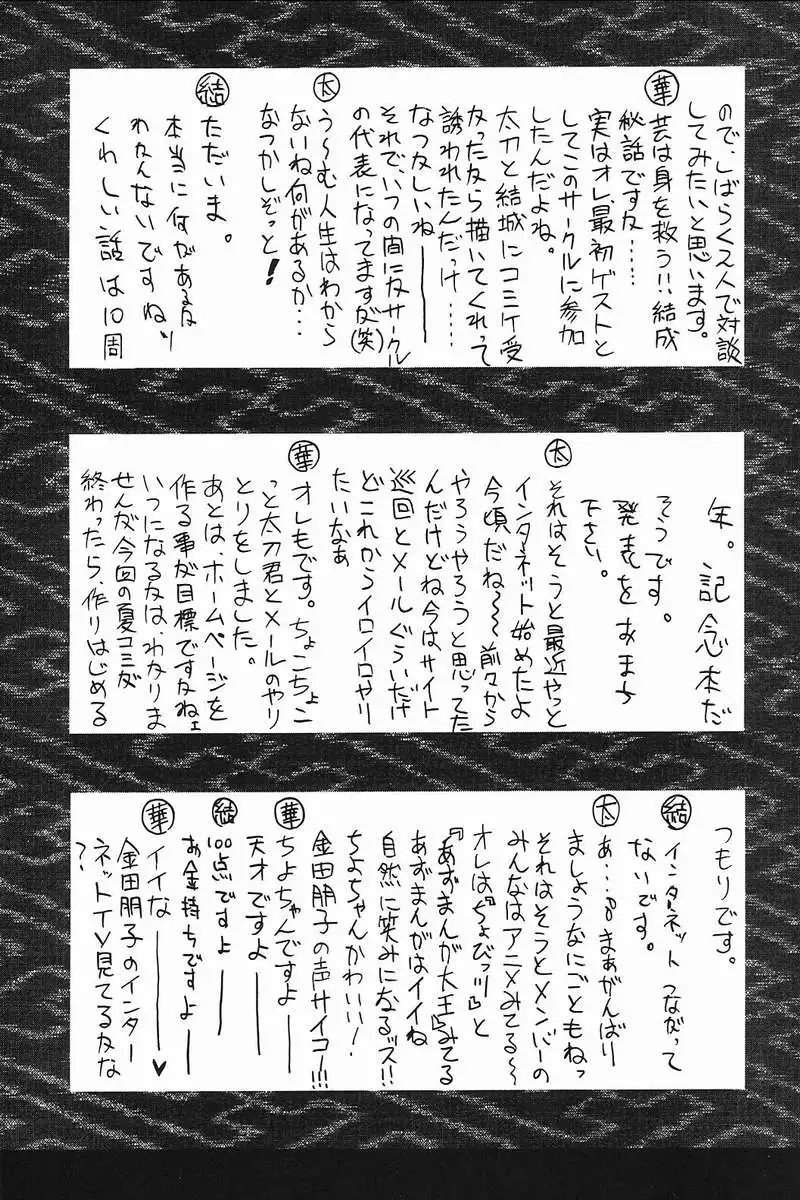 ので、しばらく3人で対談
してみたいと思います。
華 芸は身を救う!!結成
秘話ですな……
実はオレ、最初ゲストと
してこのサークルに参加
したんだよね。
太刀と結城にコミケ受
かったなら描いてくれって
誘われたんだっけ……
なつかしいね――
それで、いつの間にかサークル
の代表になってますが(笑)
太 う〜む人生はわから
ないね何があるか…
なつかしぞっと!
結 ただいま。
本当に何があるか
わかんないですねぃ
くわしい話は10周
年。記念本だ
そうです。
発表をおまち
下さい。
太 それはそうと最近やっと
インタネット始めたよ
今頃だね〜〜前々から
やろうやろうと思ってた
んだけどね今はサイト
巡回とメールぐらいだけ
どこれからイロイロやり
たいなぁ
華 オレもです。ちょこちょこ
っと太刀君とメールのやり
とりをしました。
あとは、ホームページを
作る事が目標ですかねェ
いつになるかは、わかりま
せんが今回の夏コミが
終わったら、作りはじめる
つもりです。
結 インターネットつながって
ないです。
太 あ…まぁがんばり
ましょうなにごともねっ
それはそうとメンバーの
みんなはアニメみてる〜
オレは『ちょびっツ』と
『あずまんが大王』みてる
あずまんがはイイね
自然に笑みになるッス!!
ちよちゃんかわいい!
金田朋子の声サイコー!!!
華 ちよちゃんですよ――
天才ですよ――
結 100点ですよ――
お金持ちですよ――
華 イイな――♥
金田朋子のインター
ネットTV見てるかな
?